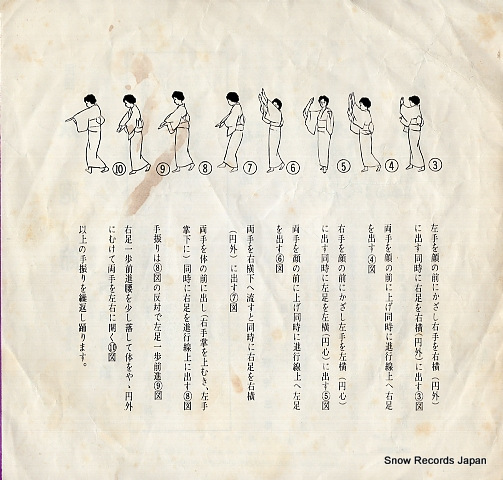 ⑩ ⑨ ⑧ ⑦ ⑥ ⑤ ④ ③
左手を顔の前にかざし右手を右横(円外)
に出す同時に右足を右横(円外)に出す③図
両手を顔の前に上げ同時に進行線上へ右足
を出す④図
右手を顔の前にかざし左手を左横(円心)
に出す同時に左足を左横(円心)に出す⑤図
両手を顔の前に上げ同時に進行線上へ左足
を出す⑥図
両手を右横下へ流すと同時に右足を右横
(円外)に出す⑦図
両手を体の前に出し(右手掌を上むき、左手
掌下に)同時に右足を進行線上に出す⑧図
手振りは⑧図の反対で左足一歩前進⑨図
右足一歩前進腰を少し落して体をやゝ円外
にむけて両手を左右に開く⑩図
以上の手振りを繰返し踊ります。
Snow Records Japan